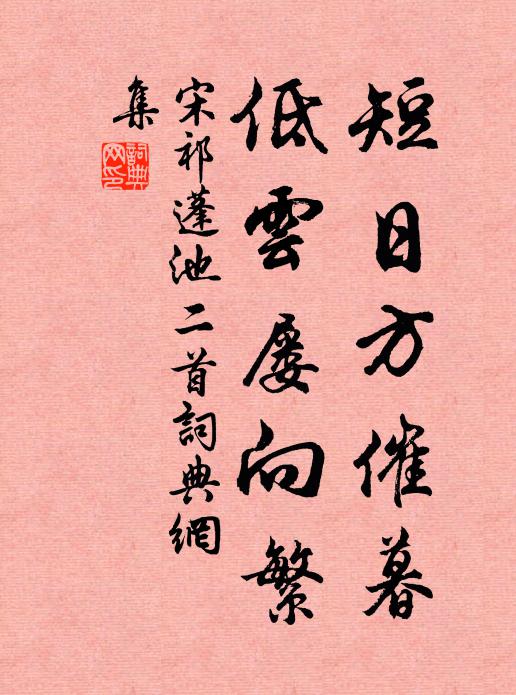 短日方催暮
低雲屢向繁
宋祁蓬池二首詞典網
集
詞典網印